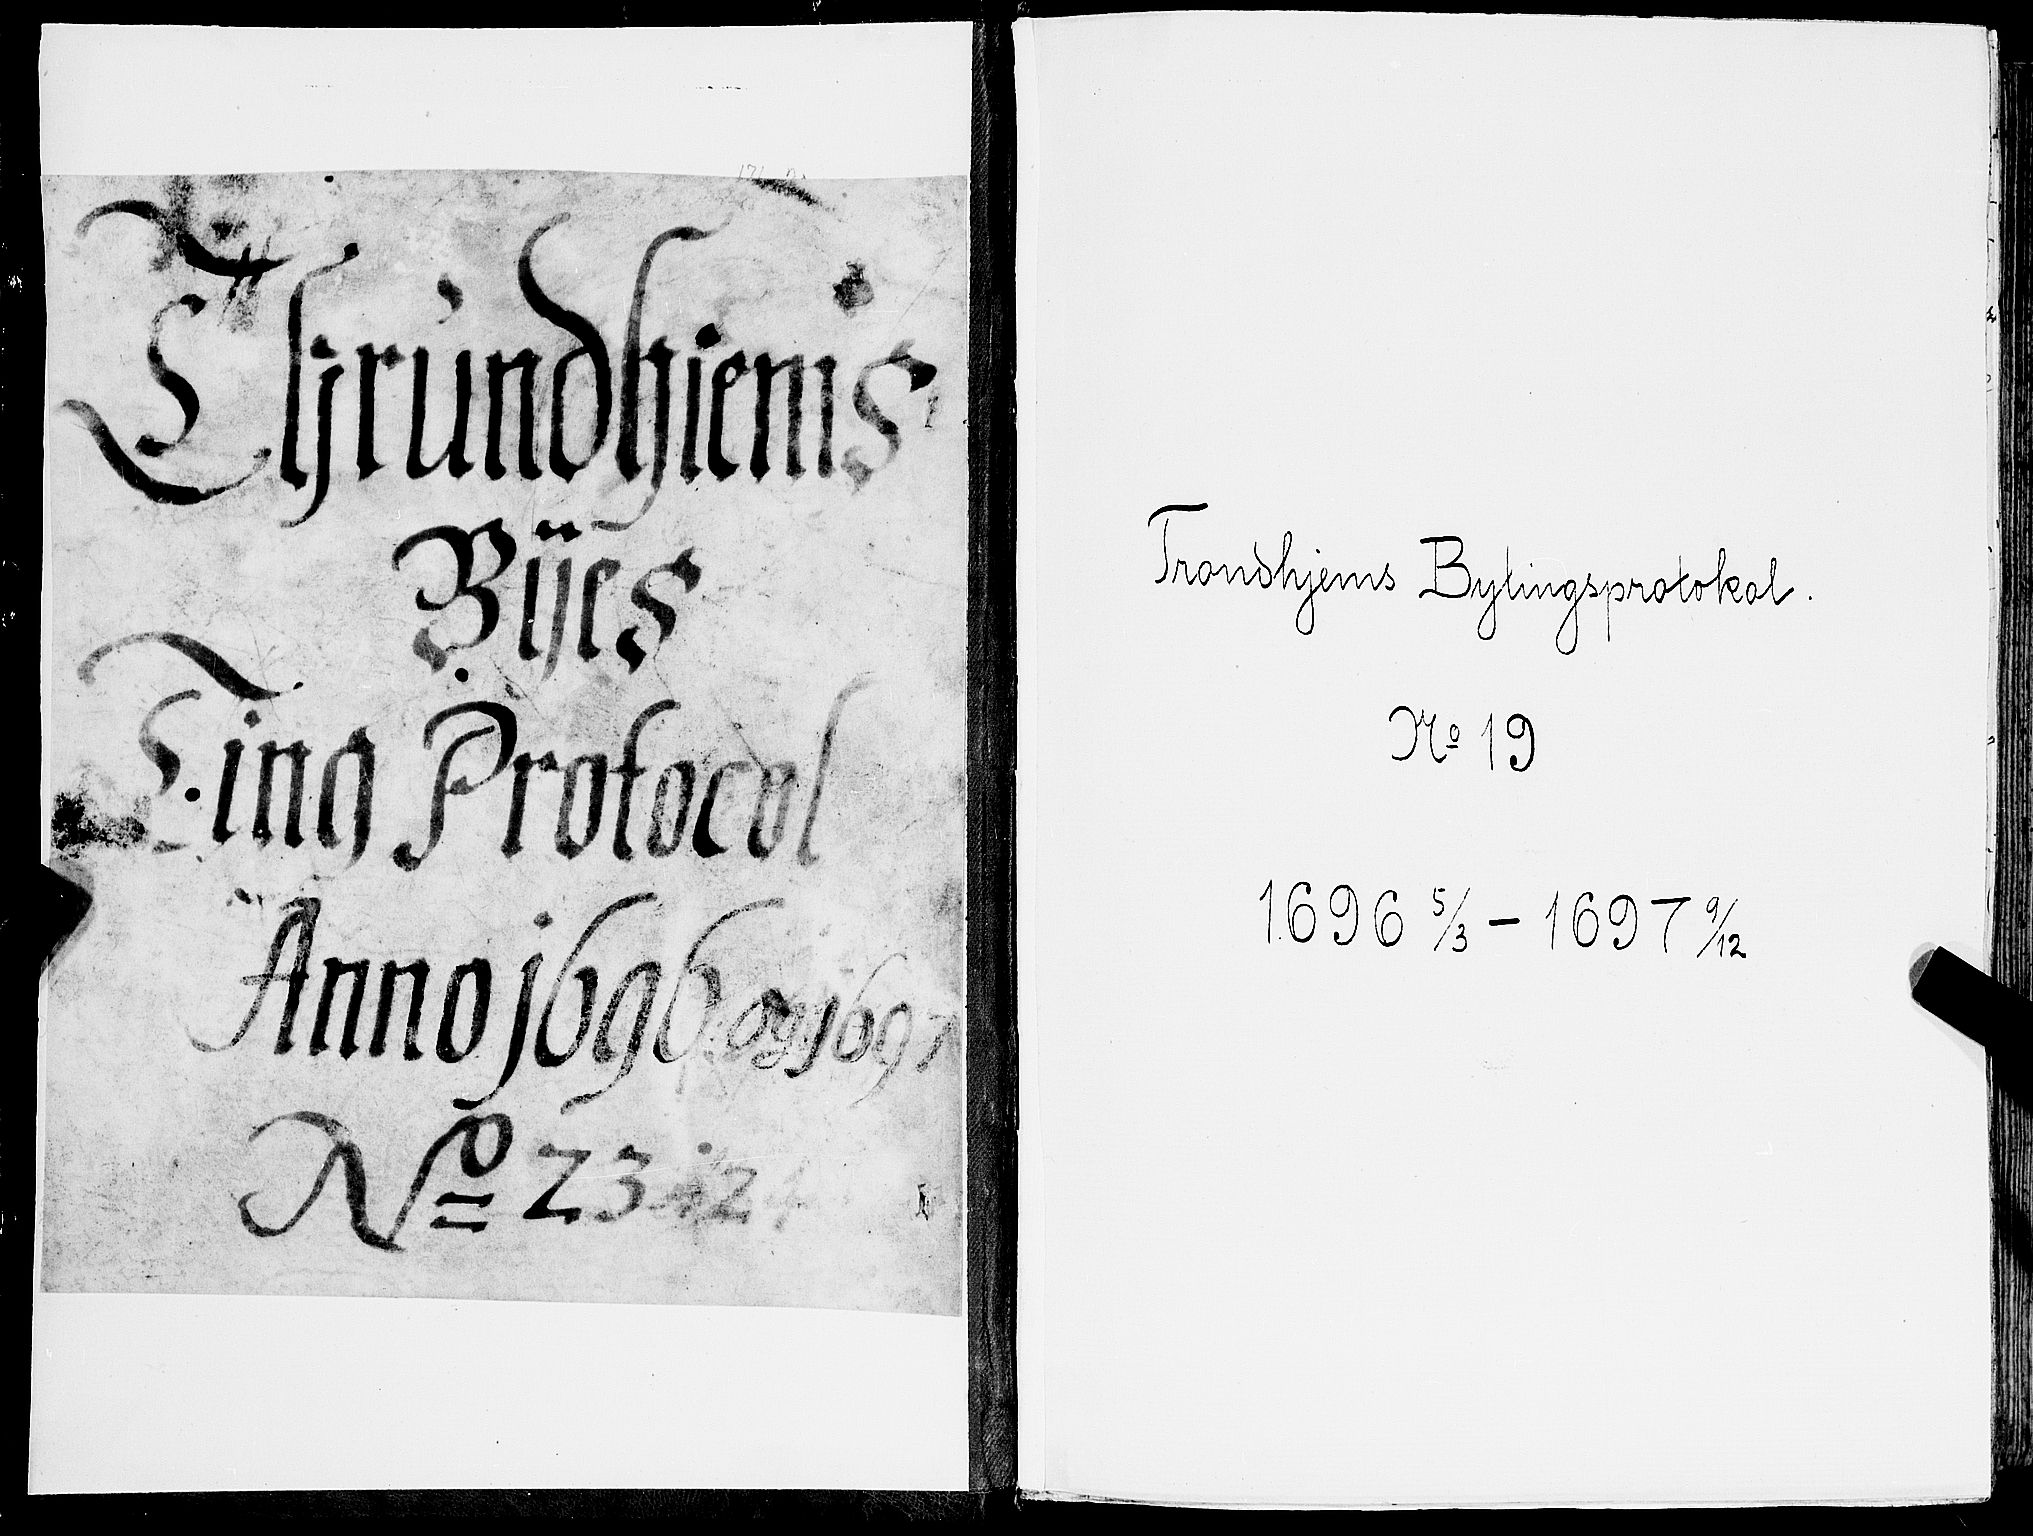 Thrúndhiems
Bÿes
Ting Protocol
Anno j696 og j697
No 23 24
Trondhjems Bytingsprotokol.
No 19
1696 5/3 – 1697 9/12